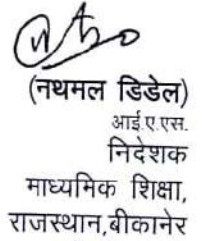 (नथमल डिडेल)
आई.ए.एस.
निदेशक
माध्यमिक शिक्षा,
राजस्थान,बीकानेर